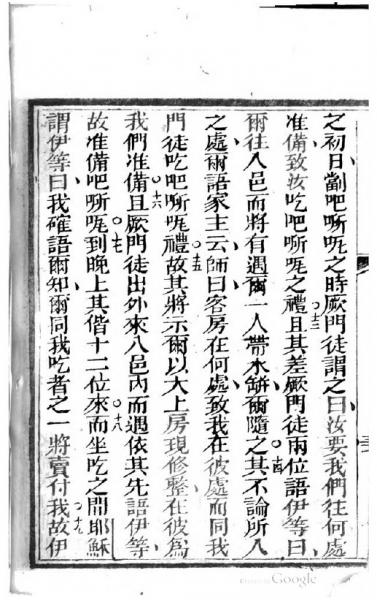 之初日劏吧㗭呃之時厥門徒謂之曰汝要我們往何處
准備致汝吃吧㗭呃之禮且其差厥門徒兩位語伊等曰
爾往入邑而將有遇爾一人帶水缾爾隨之其不論所入
之處爾語家主云師曰客房在何處致我在彼處而同我
門徒吃吧㗭呃禮故其將示爾以大上房現修整在彼為
我們准備且厥門徒出外來入邑內而遇依其先語伊等
故准備吧㗭呃到晚上其偕十二位來而坐吃之間耶穌
謂伊等曰我確語爾知爾同我吃者之一將賣付我故伊
十三
十四
十五
十六
十七
十八
十九
Google